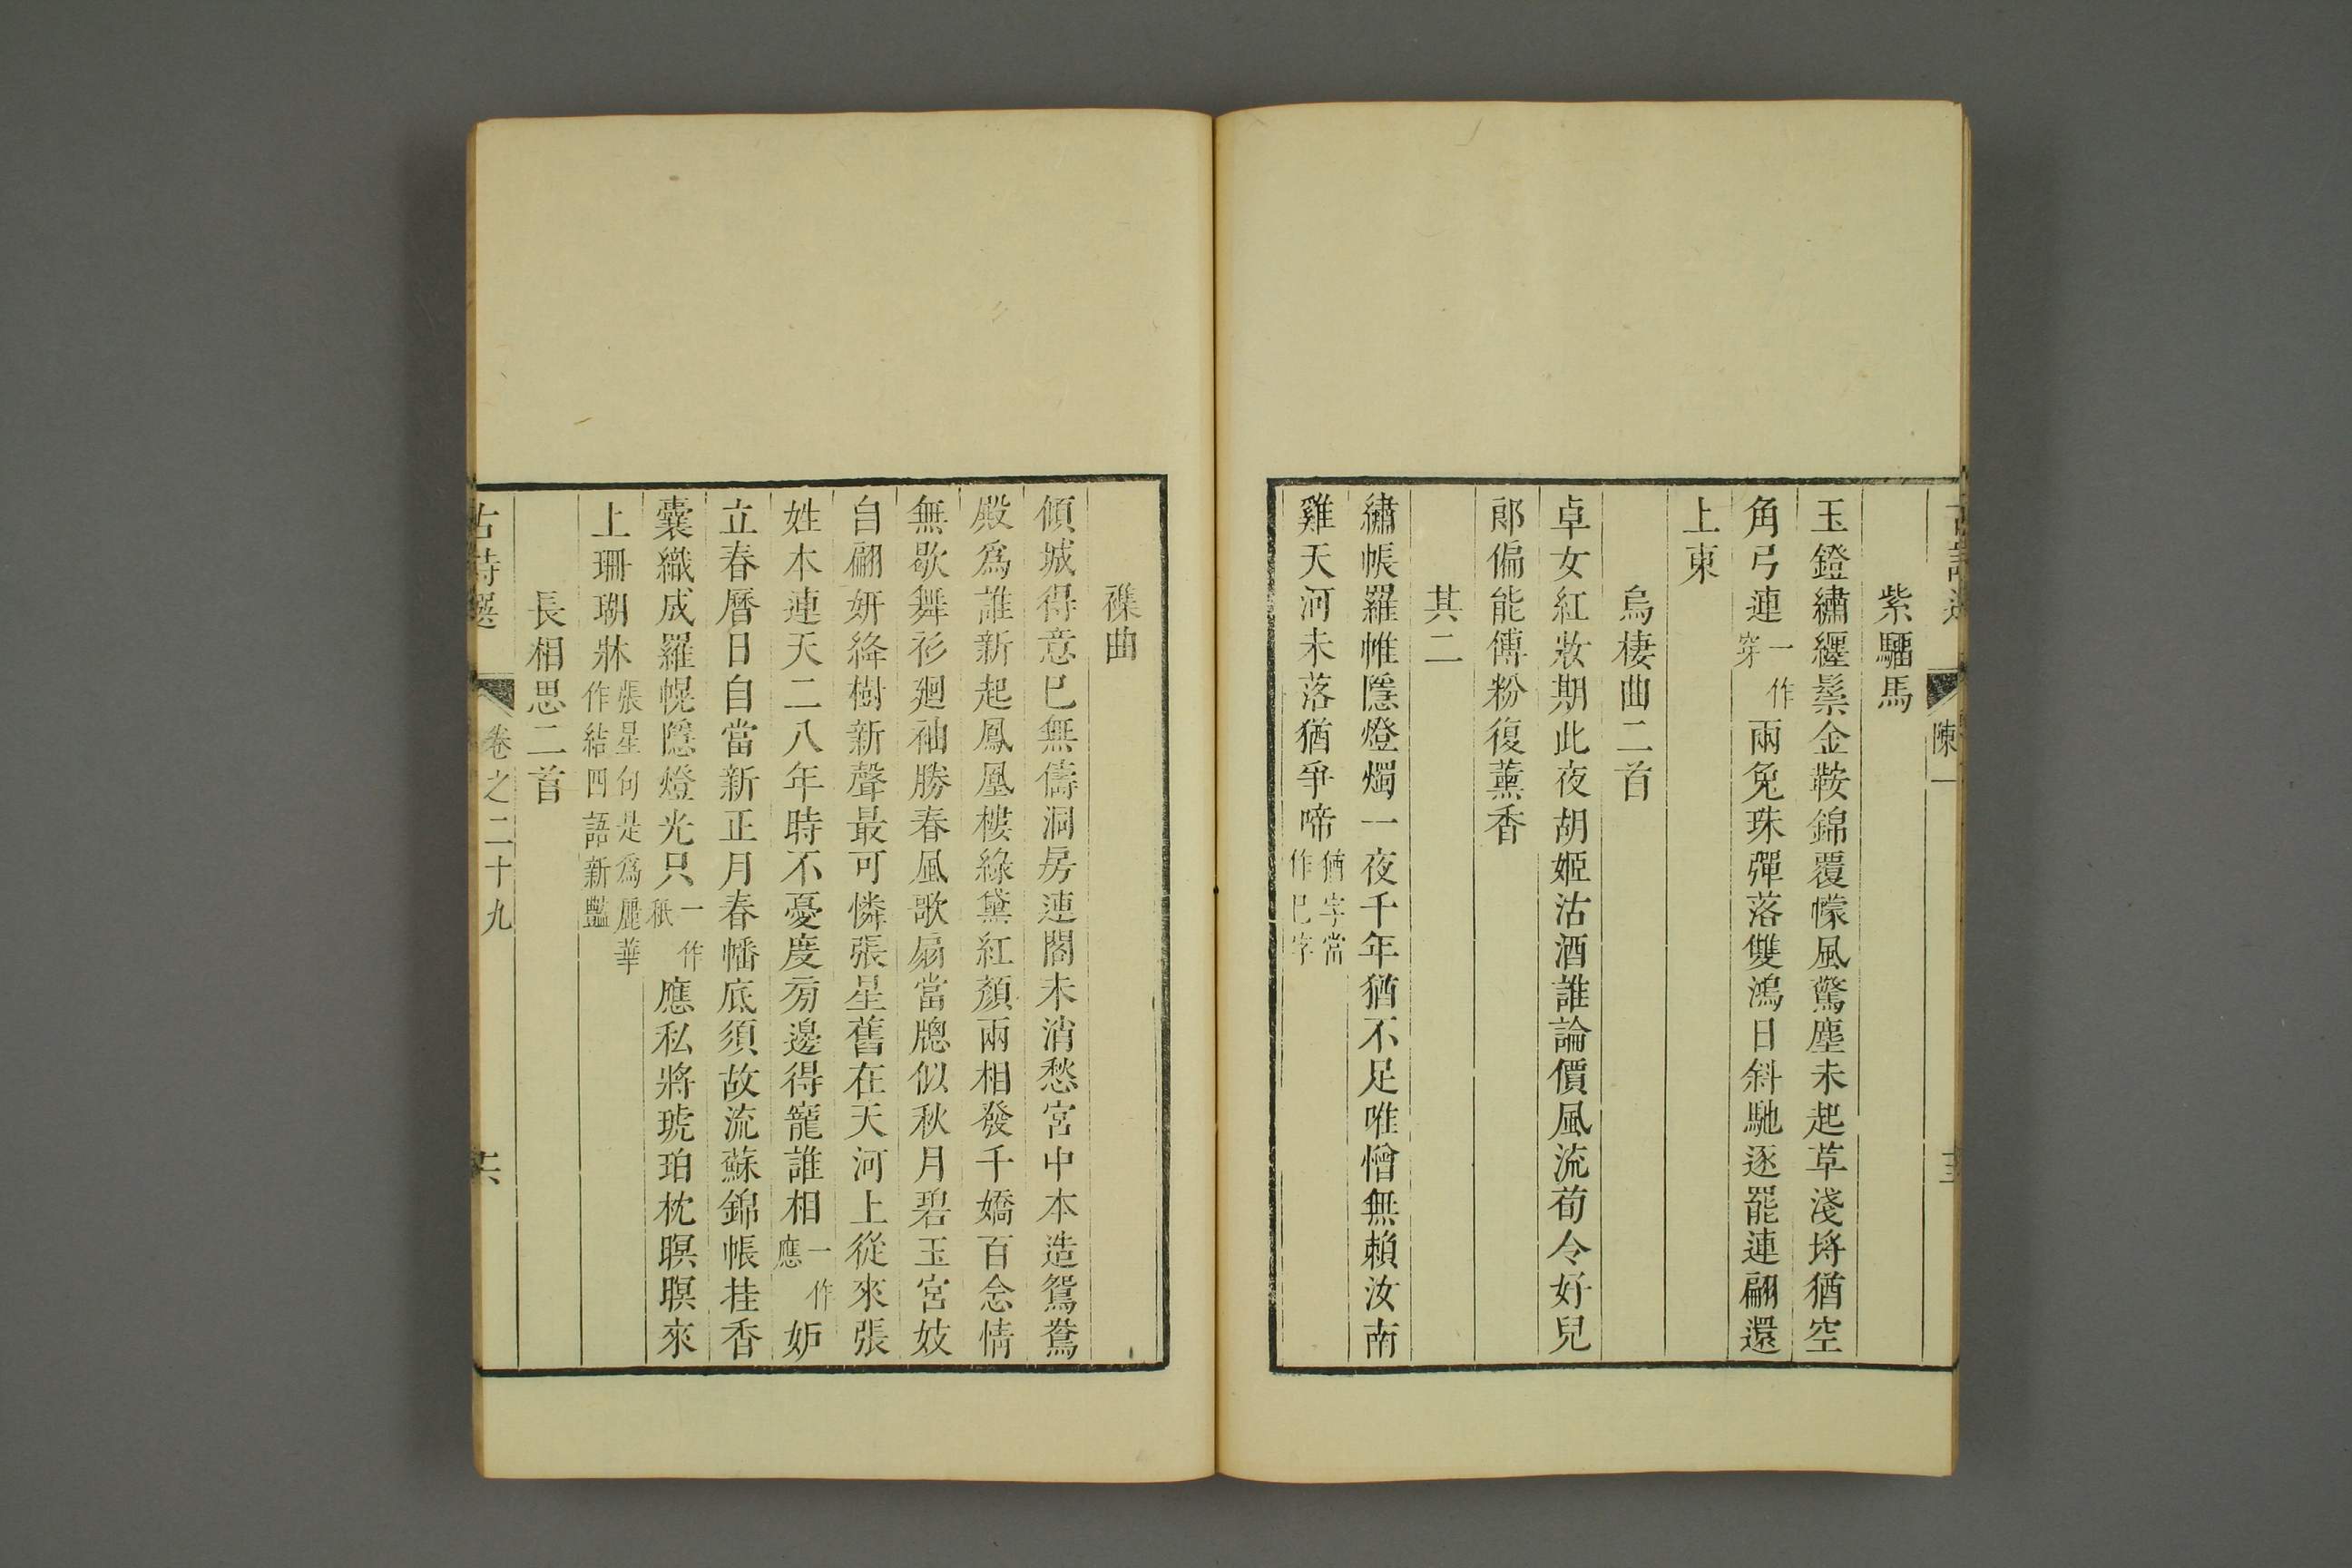 紫騮馬
玉鐙繡纏騣金鞍錦覆幪風驚塵未起草淺埓猶空
角弓連一作穿兩兔珠彈落雙鴻日斜馳逐罷連翩還
上東
烏棲曲二首
卓女紅妝期此夜胡姬沽酒誰論價風流荀令好兒
郎偏能傅粉復薰香
其二
繡帳羅帷隱燈燭一夜千年猶不足唯憎無賴汝南
雞天河未落猶爭啼猶字當作已字
襍曲
傾城得意巳無儔洞房連閣未消愁宮中本造鴛鴦
殿爲誰新起鳳凰樓綠黛紅顏兩相發千嬌百念情
無歇舞衫廻袖勝春風歌扇當牎似秋月碧玉宮妓
自翩妍絳樹新聲最可憐張星舊在天河上從來張
姓木連天二八年時不憂度旁邊得寵誰相一作應妒
立春曆日自當新正月春幡底須故流蘇錦帳挂香
囊織成羅幌隱燈光只一作秖應私將琥珀枕暝暝來
上珊瑚牀張星句是爲麗華作結四語新豔
長相思二首
古詩選 卷之二十九 十六